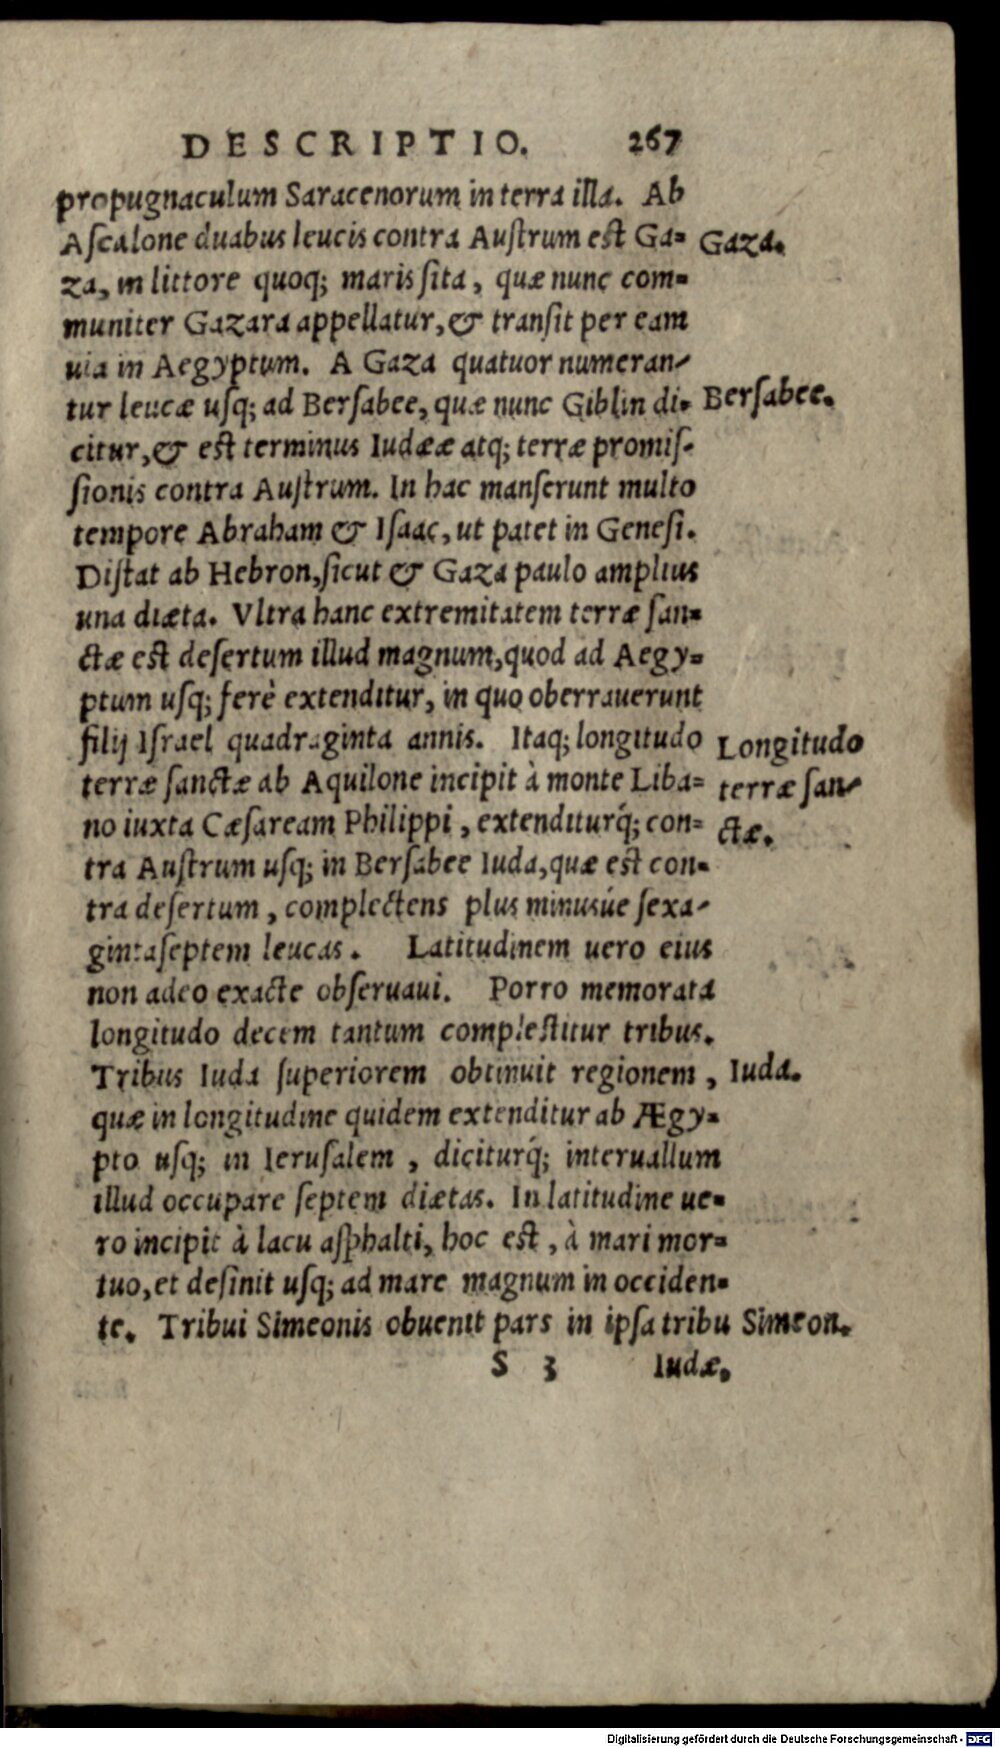 DESCRIPTIO. 267
propugnaculum Saracenorum in terra illa. Ab
Aſcalone duabus leucis contra Auſtrum eſt Ga= Gaza.
za, in littore quoq; maris ſita, quæ nunc com=
muniter Gazara appellatur, & tranſit per eam
uia in Aegyptum. A Gaza quatuor numeran-
tur leucæ uſq; ad Berſabee, quæ nunc Giblin di- Berſabee.
citur, & eſt terminus Iudææ atq; terræ promiſ-
ſionis contra Auſtrum. In hac manſerunt multo
tempore Abraham & Iſaac, ut patet in Geneſi.
Diſtat ab Hebron, ſicut & Gaza paulo amplius
una diæta. Vltra hanc extremitatem terræ ſan=
ctæ eſt deſertum illud magnum, quod ad Aegy=
ptum uſq; ferè extenditur, in quo oberrauerunt
filij Iſrael quadraginta annis. Itaq; longitudo Longitudo
terræ ſanctæ ab Aquilone incipit à monte Liba= terræ ſan-
no iuxta Cæſaream Philippi, extenditurq́; con= ctæ.
tra Auſtrum uſq; in Berſabee Iuda, quæ eſt con=
tra deſertum, complectens plus minusúe ſexa-
gintaſeptem leucas. Latitudinem uero eius
non adeo exacte obſeruaui. Porro memorata
longitudo decem tantum complectitur tribus.
Tribus Iuda ſuperiorem obtinuit regionem, Iuda.
quæ in longitudine quidem extenditur ab Ægy=
pto uſq; in Ieruſalem, diciturq́; interuallum
illud occupare ſeptem diætas. In latitudine ue=
ro incipit à lacu aſphalti, hoc eſt, à mari mor=
tuo, et deſinit uſq; ad mare magnum in occiden=
te. Tribui Simeonis obuenit pars in ipſa tribu Simeon.
S 3 Iudæ.
Digitalisierung gefördert durch die Deutsche Forschungsgemeinschaft - DFG